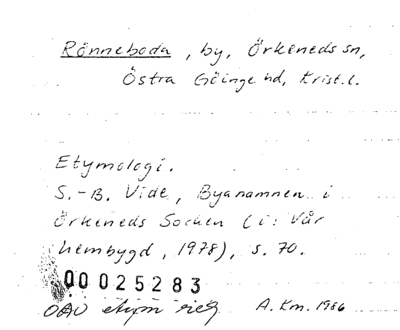 Rönneboda, by, Örkeneds sn,
Östra Göinge hd, Krist. l.
Etymologi.
S.-B. Vide, Byanamnen i
Örkeneds Socken (i: Vår
hembygd, 1978), s. 70.
00025283
OAU etym A. Km. 1986